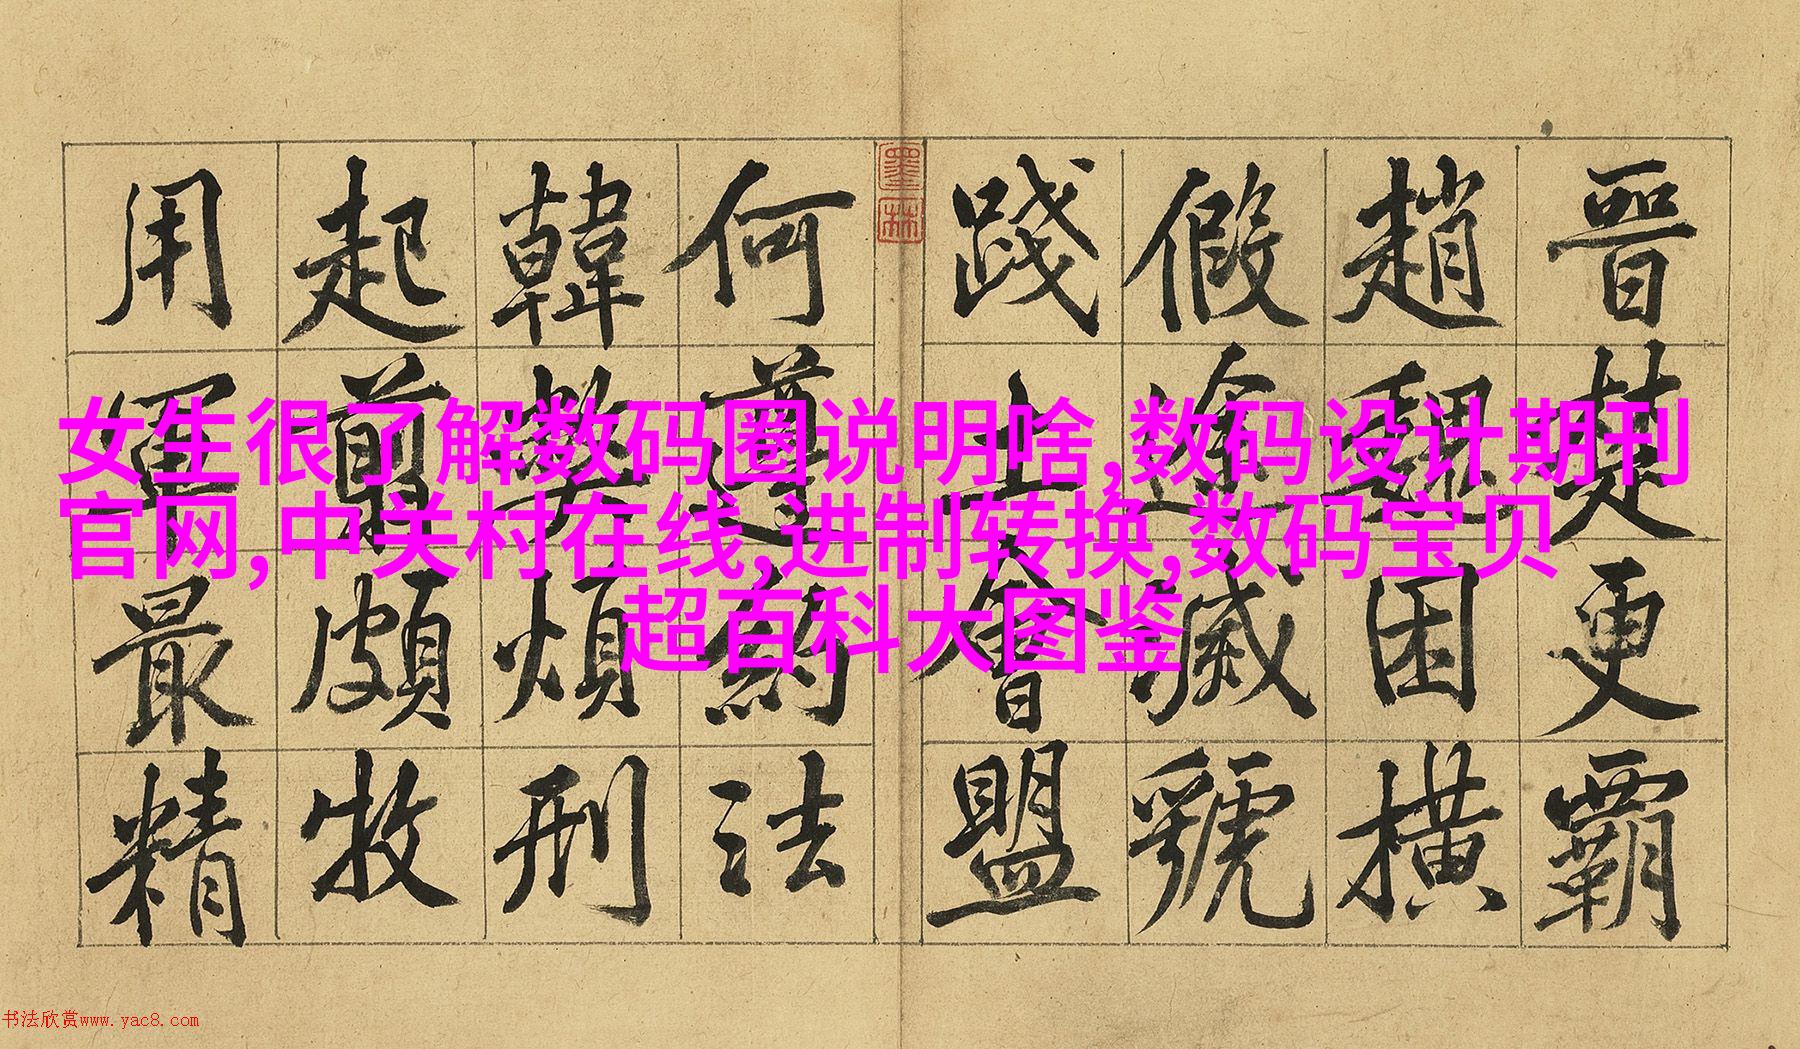 女生很了解数码圈说明啥,数码设计期刊
官网,中关村在线,进制转换,数码宝贝
超百科大图鉴
晉楚更霸
趙魏困橫
假途滅虢
踐土會盟
墨林
何遵約法
韓弊煩刑
起翦頗牧
用軍最精
书法欣赏www.yac8.com